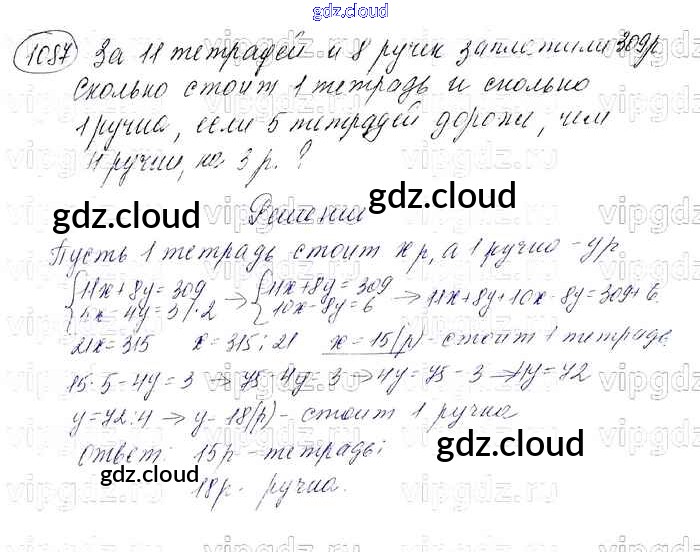 gdz.cloud
1087 За 11 тетрадей и 8 ручек заплатили 309р
Сколько стоит 1 тетрадь и сколько
1 ручка, если 5 тетрадей дороже, чем
4 ручки, на 3 р.?
gdz.cloud gdz.cloud
Решение
Пусть 1 тетрадь стоит x р, а 1 ручка - y р
{11x+8y=309 → {11x+8y=309 → 11x+8y+10x-8y=309+6
{5x-4y=3 |·2 {10x-8y=6
21x=315 x=315:21 x=15(р) - стоит 1 тетрадь
15·5-4y=3 → 75-4y=3 → 4y=75-3 → 4y=72
y=72:4 → y=18(р) - стоит 1 ручка
gdz.cloud
Ответ: 15р - тетрадь;
gdz.cloud
18р - ручка.